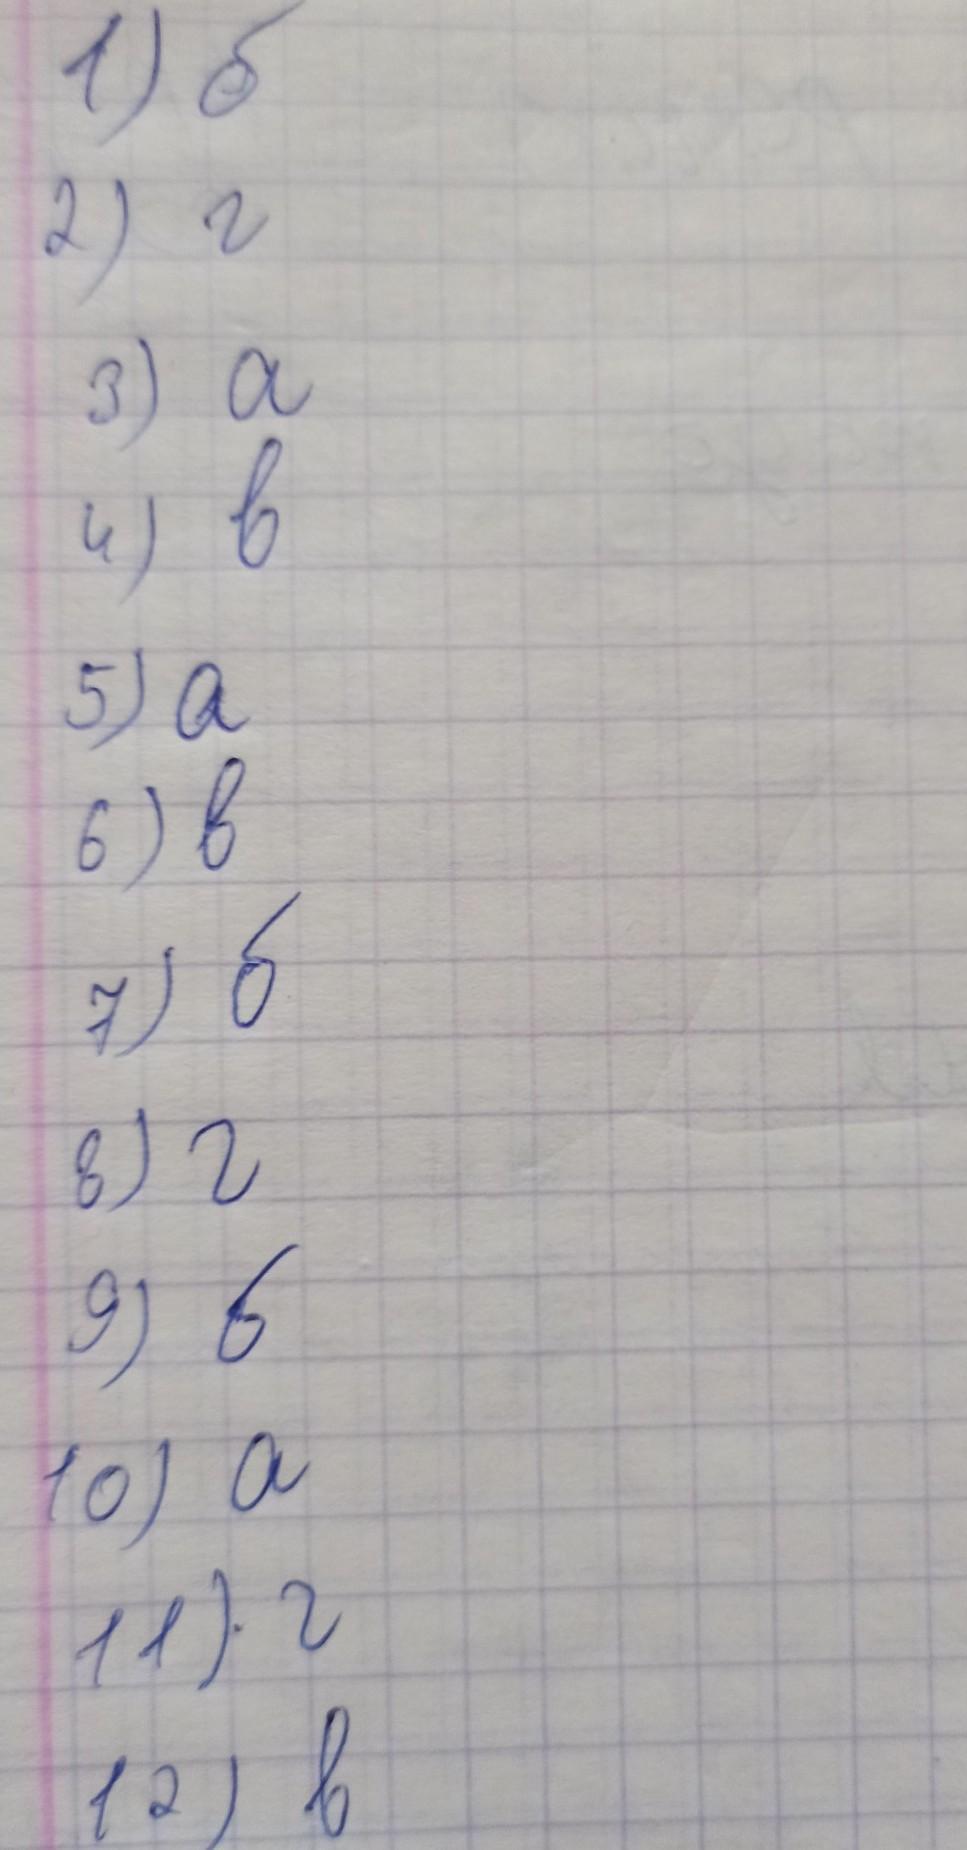 1) б
2) г
3) а
4) в
5) а
6) в
7) б
8) г
9) б
10) а
11) г
12) в